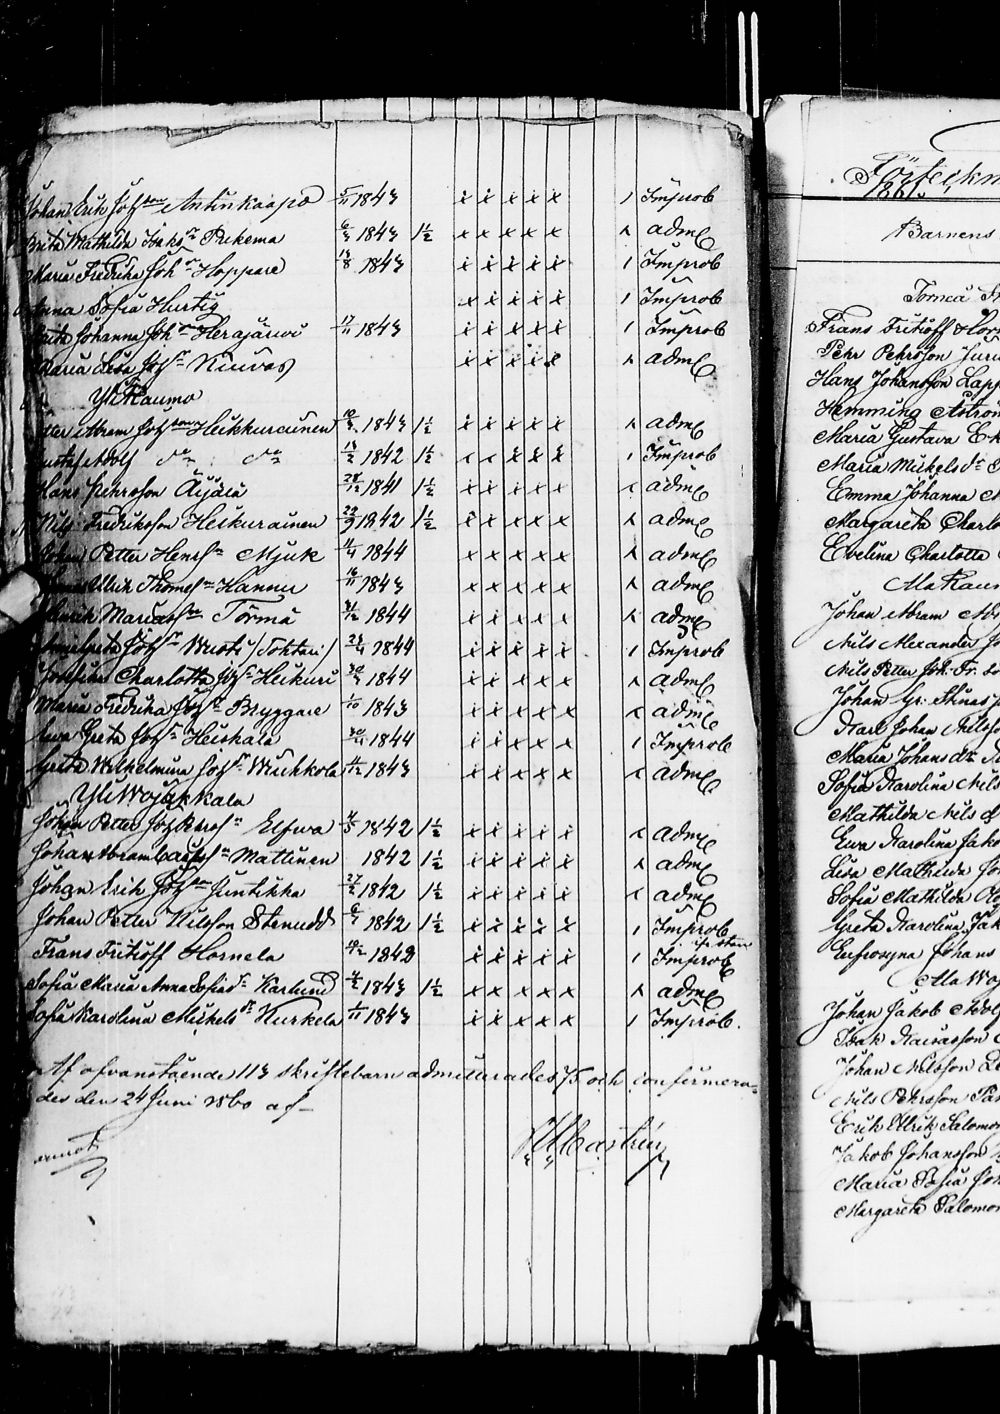 Johan Erik Joh:son Antinkaapo 5/11 1843 x x x x x 1 Improb
Brita Mathilda Isaks dr Pukema 6/3 1843 1½ x x x x x x adm
Maria Fredrika Joh dr Hoppare 13/8 1843 x x x x x 1 Improb
Anna Sofia Hurtig x x x x x 1 Improb
Greta Johanna Joh dr Herajärwi 17/11 1843 x x x x x 1 Improb
Maria Lisa Joh dr Niuvas x x x x x x adm
Yli Raumo
Petter Abram Joh son Heikkurainen 1843 1½ x x x x x x adm
Gustaf Adolf d:o d:o 13/2 1842 1½ x x x x x 1 Improb
Hans Pehrsson Äijälä 28/12 1841 1½ x x x x x x adm
Nils Fredriksson Heikurainen 22/9 1842 1½ x x x x x x adm
Johan Petter Hens sn Mjuk 11/4 1844 x x x x x x adm
Ulrik Thomes son Hannu 16/11 1843 x x x x x x adm
Henrik Mariæ son Törmä 1844 x x x x x x adm
Greta Joh dr Wuoti /Tohteri/ 23/4 1844 x x x x x 1 Improb
Josefina Charlotta Joh dr Heikuri 30/3 1844 x x x x x x adm
Maria Fredrika Joh dr Bryggare 1/10 1843 x x x x x x adm
Ewa Greta Joh dr Heiskala 1844 x x x x x 1 Improb
Greta Wilhelmina Joh dr Wuhkola 11/12 1843 x x x x x x adm
Yli Wojakkala
Johan Petter Joh Elfwa 4/5 1842 1½ x x x x x x adm
Johan Abram Mattinen 1842 1½ x x x x x x adm
Johan Erik Joh son Juntikka 27/2 1842 1½ x x x x x x adm
Johan Petter Nilsson Stenudd 6/7 1842 1½ x x x x x 1 Improb
Frans Fritioff Hornela 1843 x x x x x 1 Improb
Sofia Maria Anna Sofias dr Karlund 4/2 1843 1½ x x x x x x adm
Sofia Karolina Mickels dr Kurkela 1/11 1843 x x x x x 1 Improb.
Af ofvanstående 113 skriftebarn admitterades 75 och confirmera-
des den 24 Juni 1860 af
Castrén
Förteckn
1861.
Barnens
Torneå
Frans Fritioff Horn
Pehr Pehrsson Juru
Hans Johansson Lapp
Hemming Åström
Maria Gustava
Maria Mickels dr
Emma Johanna
Margareta Charlo
Evelina Charlotta
Ala Raum
Johan Abram
Nils Alexander Jo
Nils Petter Joh. Fr.
Johan Gr.
Karl Johan Nilsso
Maria Johans dr
Sofia Karolina Nils
Mathilda Nils d
Ewa Karolina Jako
Lisa Mathilda Jo
Sofia Mathilda Olo
Greta Karolina Jak
Eufrosyna Johans
Ala Woj
Johan Jakob Adolf
Isak Kaisasson
Johan Nilsson
Nils Pehrsson
Erik Ulrik Salomon
Jakob Johansson
Maria Sofia Joh
Margareta Salomon